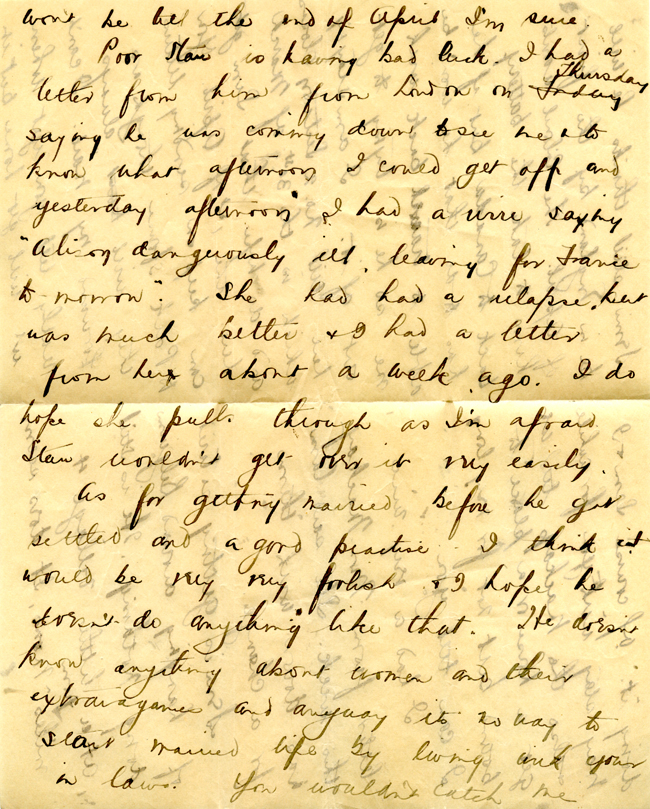 wont be till the end of April I'm sure.
Poor Stan is having bad luck. I had a
letter from him from London on Thursday
saying he was coming down to see me & to
know what afternoon I could get off and
yesterday afternoon I had a wire saying
"Alison dangerously ill, leaving for France
to-morrow". She had had a relapse, but
was much better & I had a letter
from her about a week ago. I do
hope she pulls through as I'm afraid
Stan wouldn't get over it very easily.
As for getting married before he got
settled and a good practise I think it
would be very very foolish & I hope he
doesn't do anything like that. He doesn't
know anything about women and their
extravagance and anyway its no way to
start married life by living with your
in laws. You wouldn't catch me